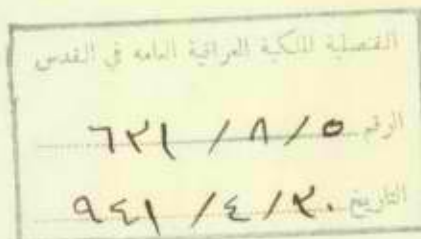 القنصلية الملكية العراقية العامه في القدس
الرقم ٦٢١ / ٨ / ٥
التاريخ ٩٤١ / ٤ / ٢٠